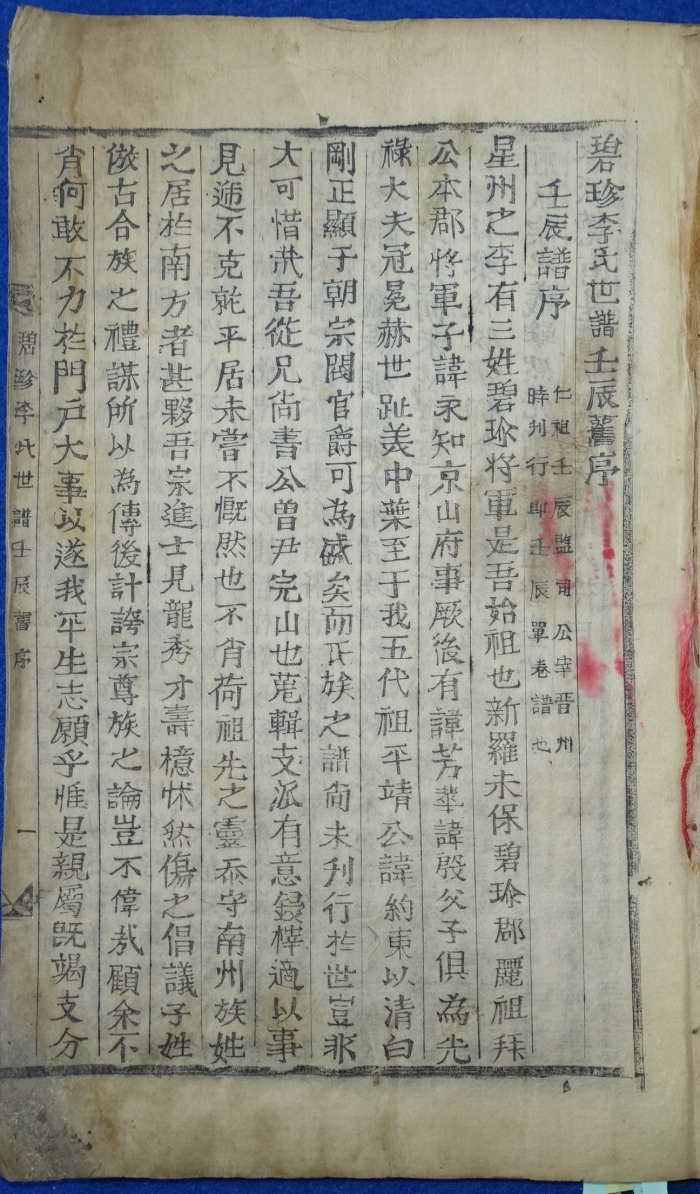 碧珍李氏世譜壬辰舊序
壬辰譜序
仁祖壬辰監司公宰晋州
時刋行卽壬辰單卷譜也
星州之李有三姓碧珎將軍是吾始祖也新羅末保碧珎郡麗祖拜
公本郡將軍子諱永知京山府事厥後有諱芳華諱殷父子俱為光
祿大夫冠冕赫世趾美中葉至于我五代祖平靖公諱約東以清白
剛正顯于朝宗閥官爵可為盛矣而氏族之譜尙未刋行於世豈非
大可惜㢤吾從兄尙書公曽尹完山也蒐輯支派有意鋟梓適以事
見遞不克就平居未嘗不慨然也不肖荷祖先之靈忝守南州族姓
之居於南方者甚夥吾宗進士見龍秀才壽檍怵然傷之倡議子姓
倣古合族之禮謀所以為傳後計諤宗尊族之論豈不偉㢤顧余不
肖何敢不力於門戶大事以遂我平生志願乎惟是親屬旣竭支分
碧珍李氏世譜壬辰舊序
一